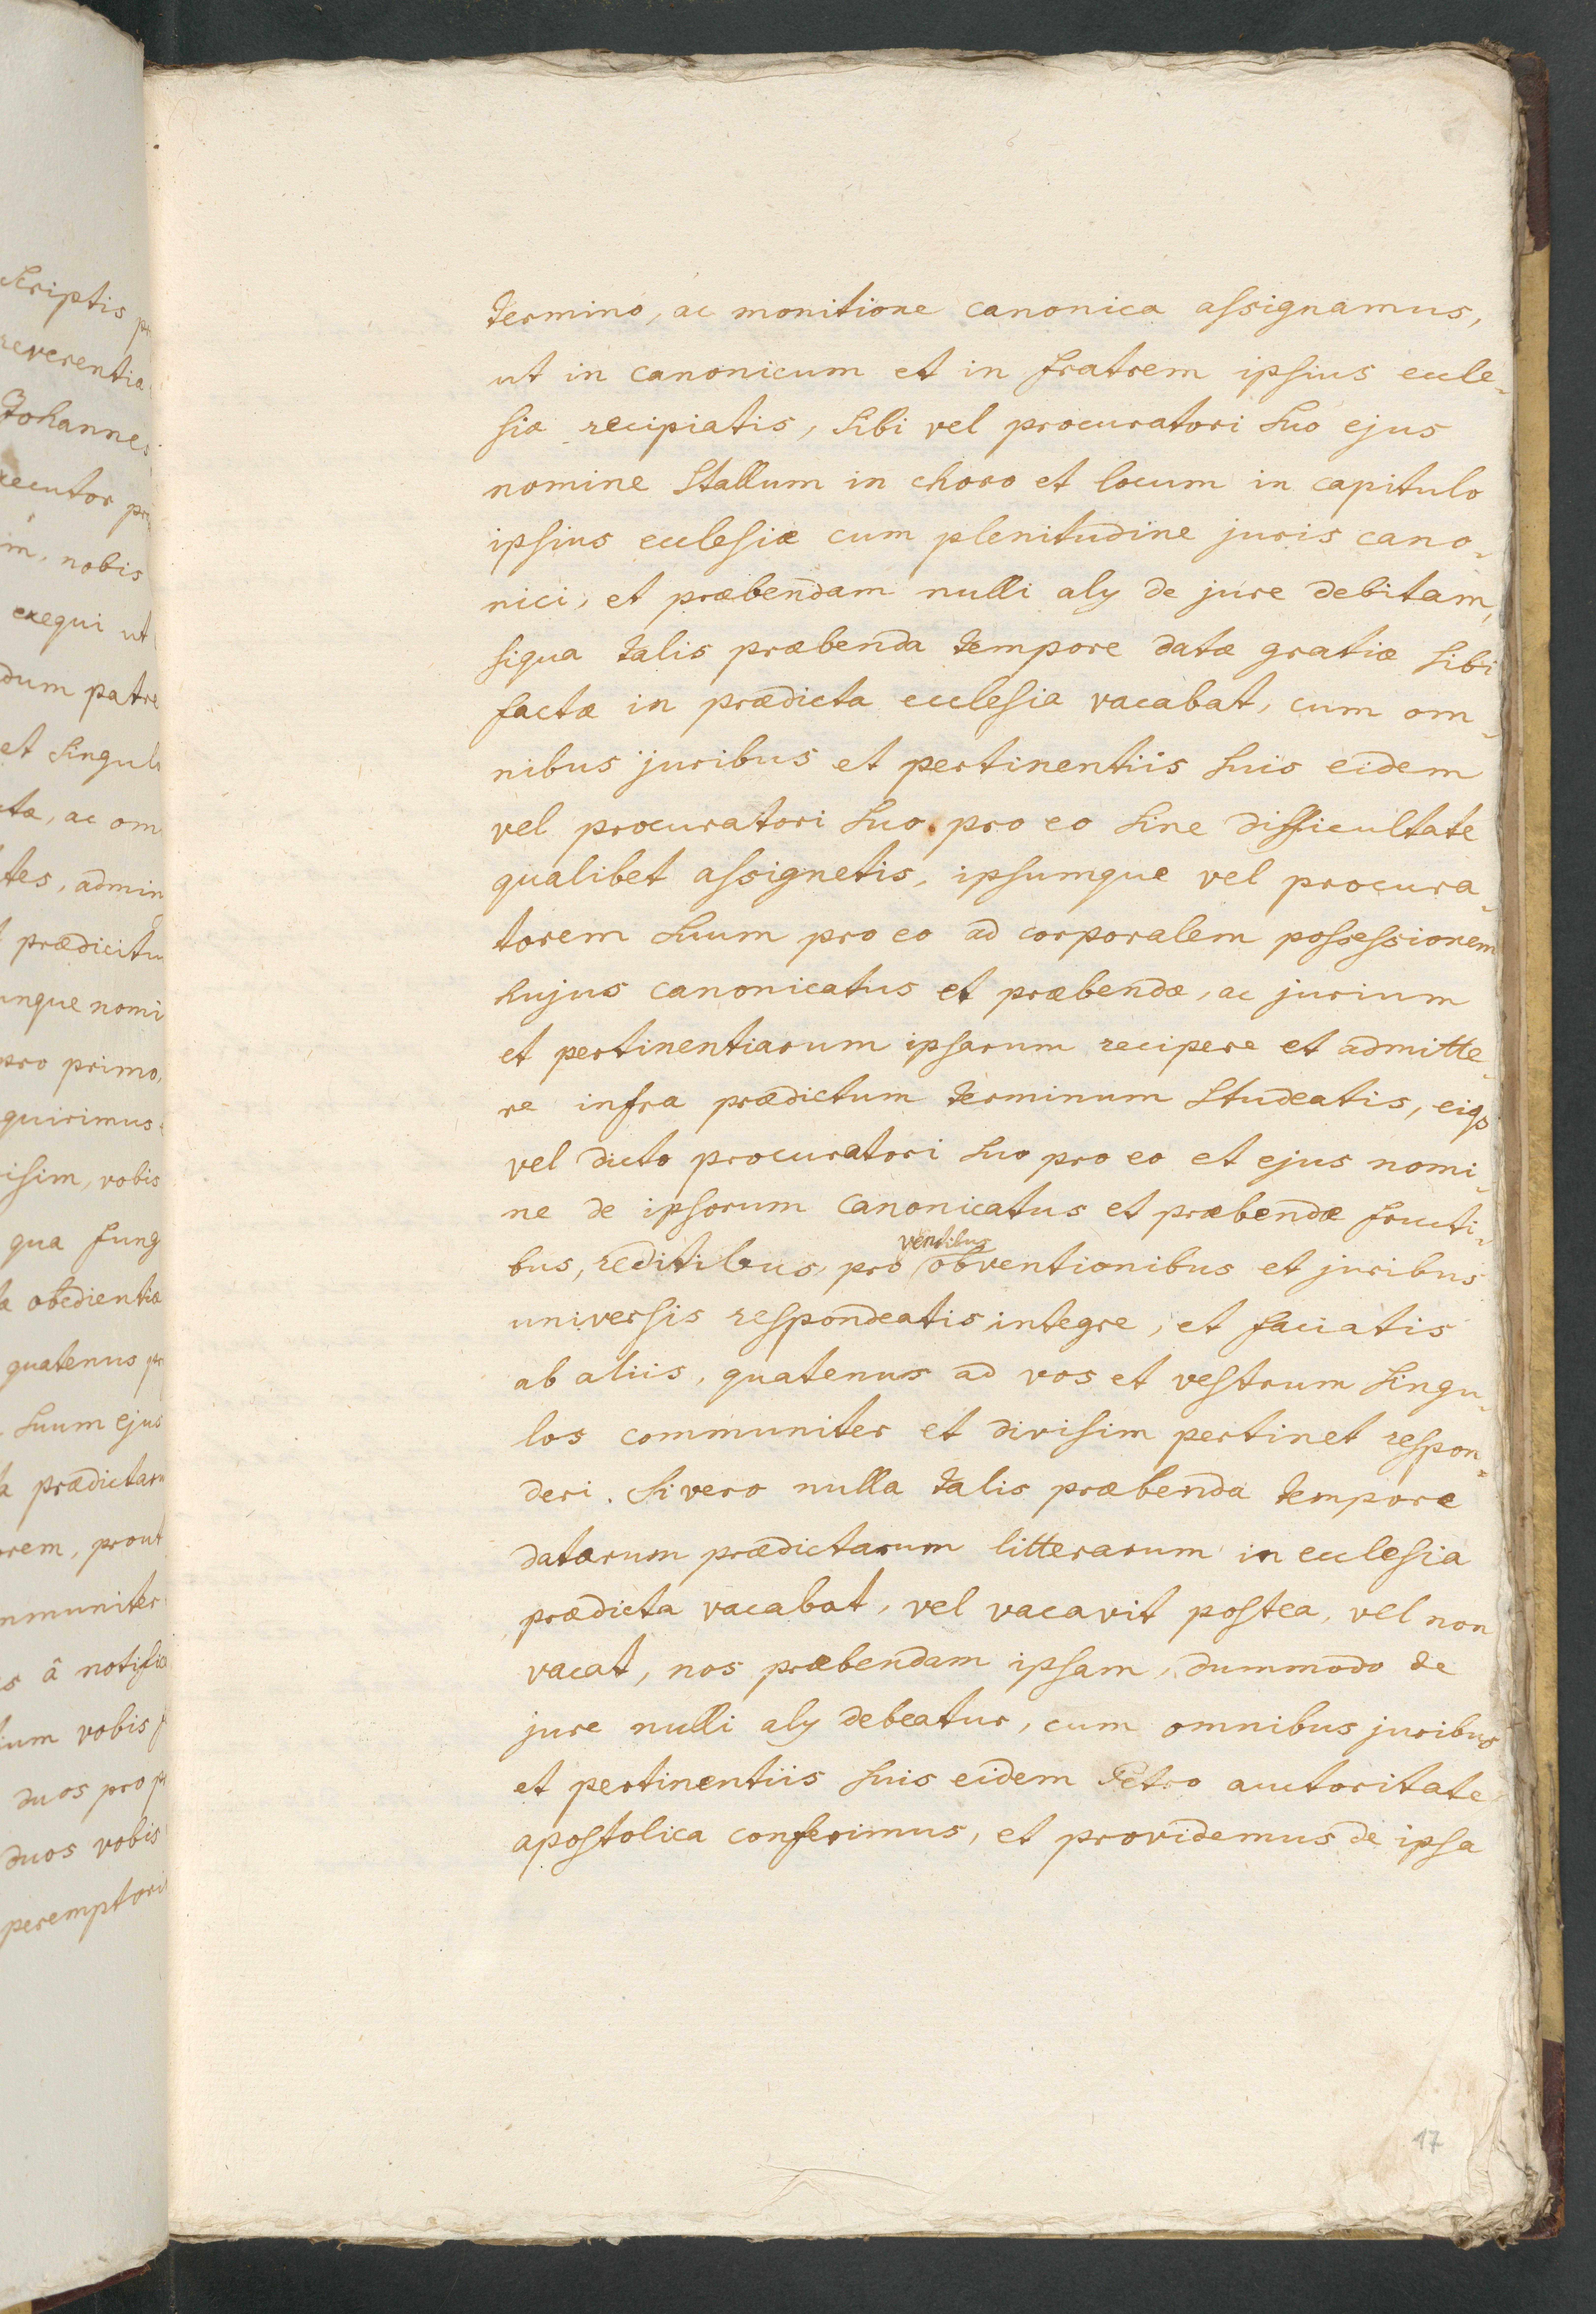 Scriptis
reverentia
Johannes
xecutor
m, nobis
exequi ut
dum patre
et singul
ta, ac om
tes, admin
prædicitu
unque nomi
pro primo,
quirimus
isim, vobis
qua fung
a obedientiæ
quatenus
suum ejus
a prædictaru
orem, prout
mmuniter
s â notific
ium vobis
duos pro
duos vobis
peremptori
termino, ac monitione canonica assignamus,
ut in canonicum et in fratrem ipsius eccle-
siæ recipiatis, sibi vel procuratori suo ejus
nomine stallum in choro et locum in capitulo
ipsius ecclesiæ cum plenitudine juris cano-
nici, et præbendam nulli alÿ de jure debitam,
siqua talis præbenda tempore datæ gratiæ sibi
factæ in prædicta ecclesia vacabat, cum om-
nibus juribus et pertinentiis suis eidem
vel procuratori suo pro eo sine difficultate
qualibet assignetis, ipsumque vel procura-
torem suum pro eo ad corporalem possessionem
hujus canonicatus et præbendæ, ac jurium
et pertinentiarum ipsarum recipere et admitte-
re infra prædictum terminum studeatis, eiqs
vel dicto procuratori suo pro eo et ejus nomi-
ne de ipsorum canonicatus et præbendæ fructi-
ventibus
bus, reditibus, pro obventionibus et juribus
universis respondeatis integre, et faciatis
ab aliis, quatenus ad vos et vestrum singu-
los communiter et divisim pertinet respon-
deri. Si vero nulla talis præbenda tempore
datarum prædictarum litterarum in ecclesia
prædicta vacabat, vel vacavit postea, vel non
vacat, nos præbendam ipsam, dummodo de
jure nulli alÿ debeatur, cum omnibus juribus
et pertinentiis suis eidem Petro auctoritate
apostolica conferimus, et providemus de ipsa
17